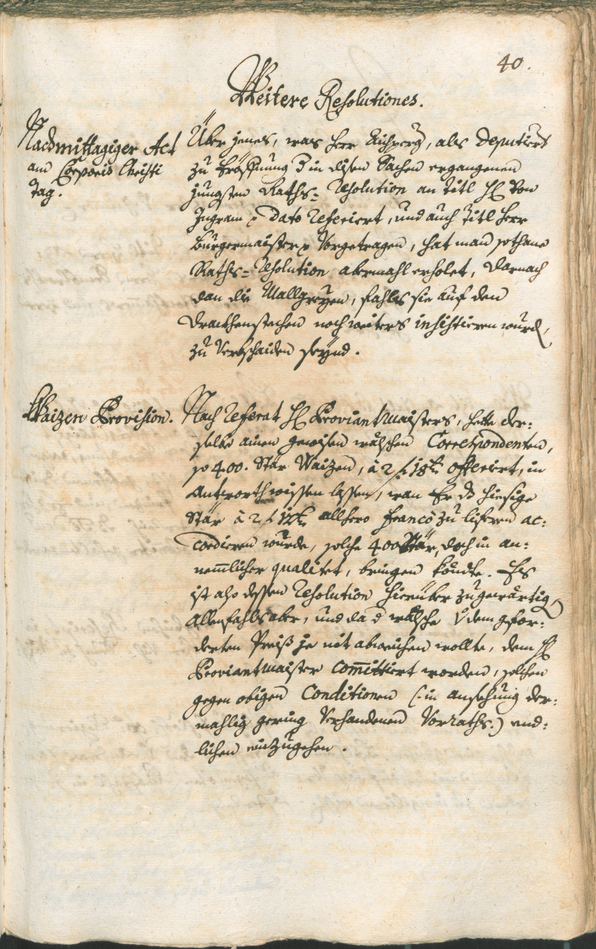 40.
Weitere Resolutiones.
Nachmittagiger Act
am Corporis Christi
Tag.
Über jenes, was Herr Kuhperg, als Deputiert
zu Eröffnung in disen Sachen ergangenen
jüngsten Raths-Resolution an Titl H: von
Ingram p dato Referiert, und auch Titl Herr
Burgermaister p Vorgetragen, hat man sothane
Raths-Resolution abermahl erholet, darnach
dan die fahls sie auf den
Drachenstechen noch weiters insistieren wurden,
zu Verbschaiden seynd.
Waizen Provision.
Nach Referat H: Proviantmaisters, hette der-
selbe ainen gewisen wälschen Correspondenten,
so 400. Stär Waizen, à 2 f 18 x offeriert, in
Antworth wissen lassen, wan Er das hiesige
Stär à 2 f 12 x allhero franco zu lifern ac-
cordieren wurde, solche 400 Stär, doch in an-
nemlicher qualitet, bringen könte. Es
ist also dessen Resolution hierüber zugewärtig,
allenfahls aber, und da der wälsche von dem gefor-
derten Preiß ja nit abweichen wollte, dem H:
Proviantmaister Committiert worden, solchen
gegen obigen Conditionen (: in ansehung der-
mahlig gering Verhandenen Vorraths :) end-
lichen einzugehen.